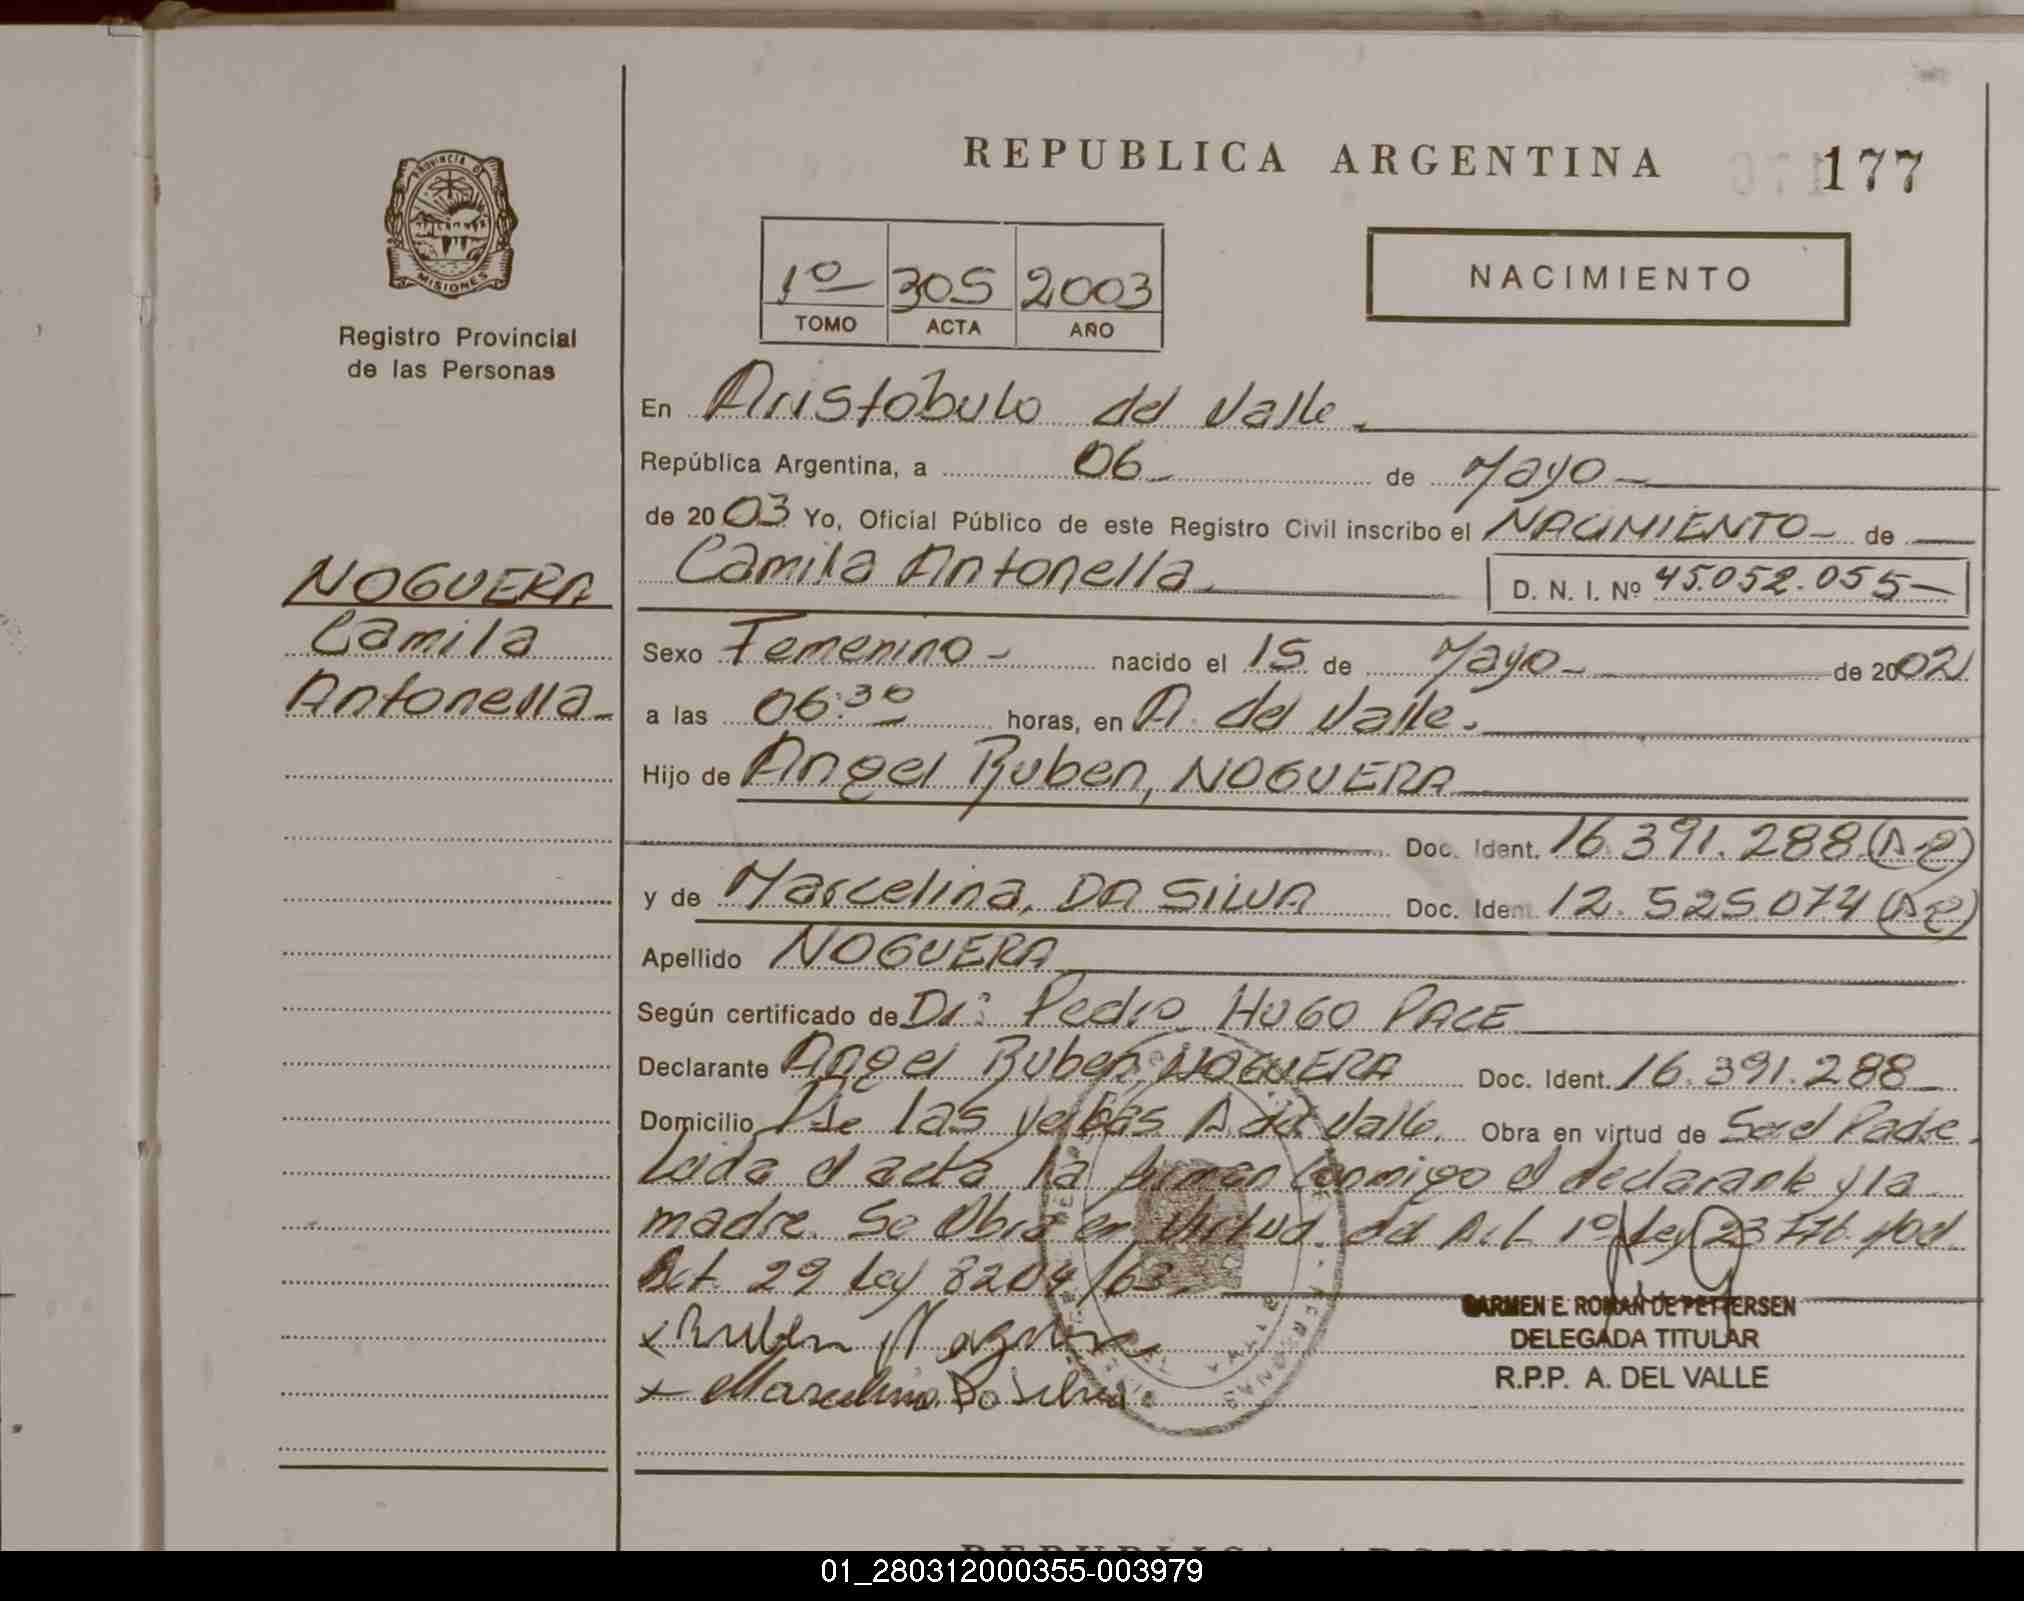 REPUBLICA ARGENTINA 177
PROVINCIA DE
MISIONES
Registro Provincial
de las Personas
1º 305 2003
TOMO ACTA AÑO
NACIMIENTO
En Aristobulo del Valle.
República Argentina, a 06 de Mayo
de 2003 Yo, Oficial Público de este Registro Civil inscribo el NACIMIENTO de
Camila Antonella D. N. I. Nº 45.052.055
NOGUERA
Camila
Antonella
Sexo Femenino nacido el 15 de Mayo de 2002
a las 06:30 horas, en A. del Valle.
Hijo de Angel Ruben, NOGUERA
Doc. Ident. 16.391.288
y de Marcelina, DA SILVA Doc. Ident. 12.525.074
Apellido NOGUERA
Según certificado de Dr: Pedro HUGO PACE
Declarante Angel Ruben, NOGUERA Doc. Ident. 16.391.288
Domicilio De las yerbas A del Valle. Obra en virtud de Ser el Padre.
Leida el acta la firman conmigo el declarante y la
madre. Se Obra en virtud del Art. 1º Ley 23.776. mod.
Art. 29 Ley 8204/63
x Ruben Noguera
x Marcelina Da Silva
CARMEN E. ROMAN DE PETTERSEN
DELEGADA TITULAR
R.P.P. A. DEL VALLE
01_280312000355-003979